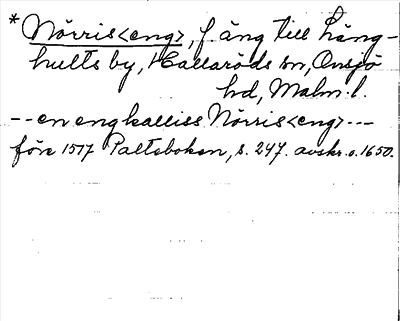 * Nörris<eng>, f. äng till Häng-
hults by, Hallaröds sn, Onsjö
hd, Malm. l.
-- en eng kalliss Nörris<eng> ---
före 1517 Palteboken, s. 247. avskr. o. 1650.